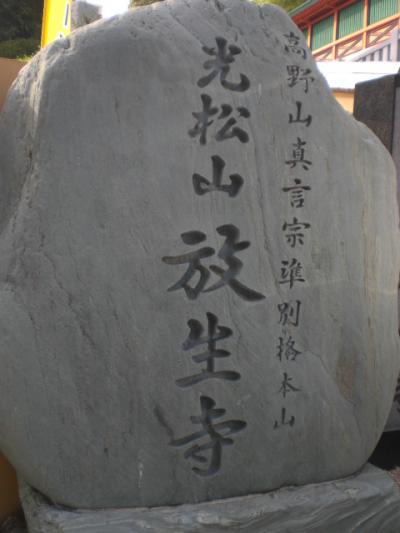 高野山真言宗準別格本山
光松山放生寺